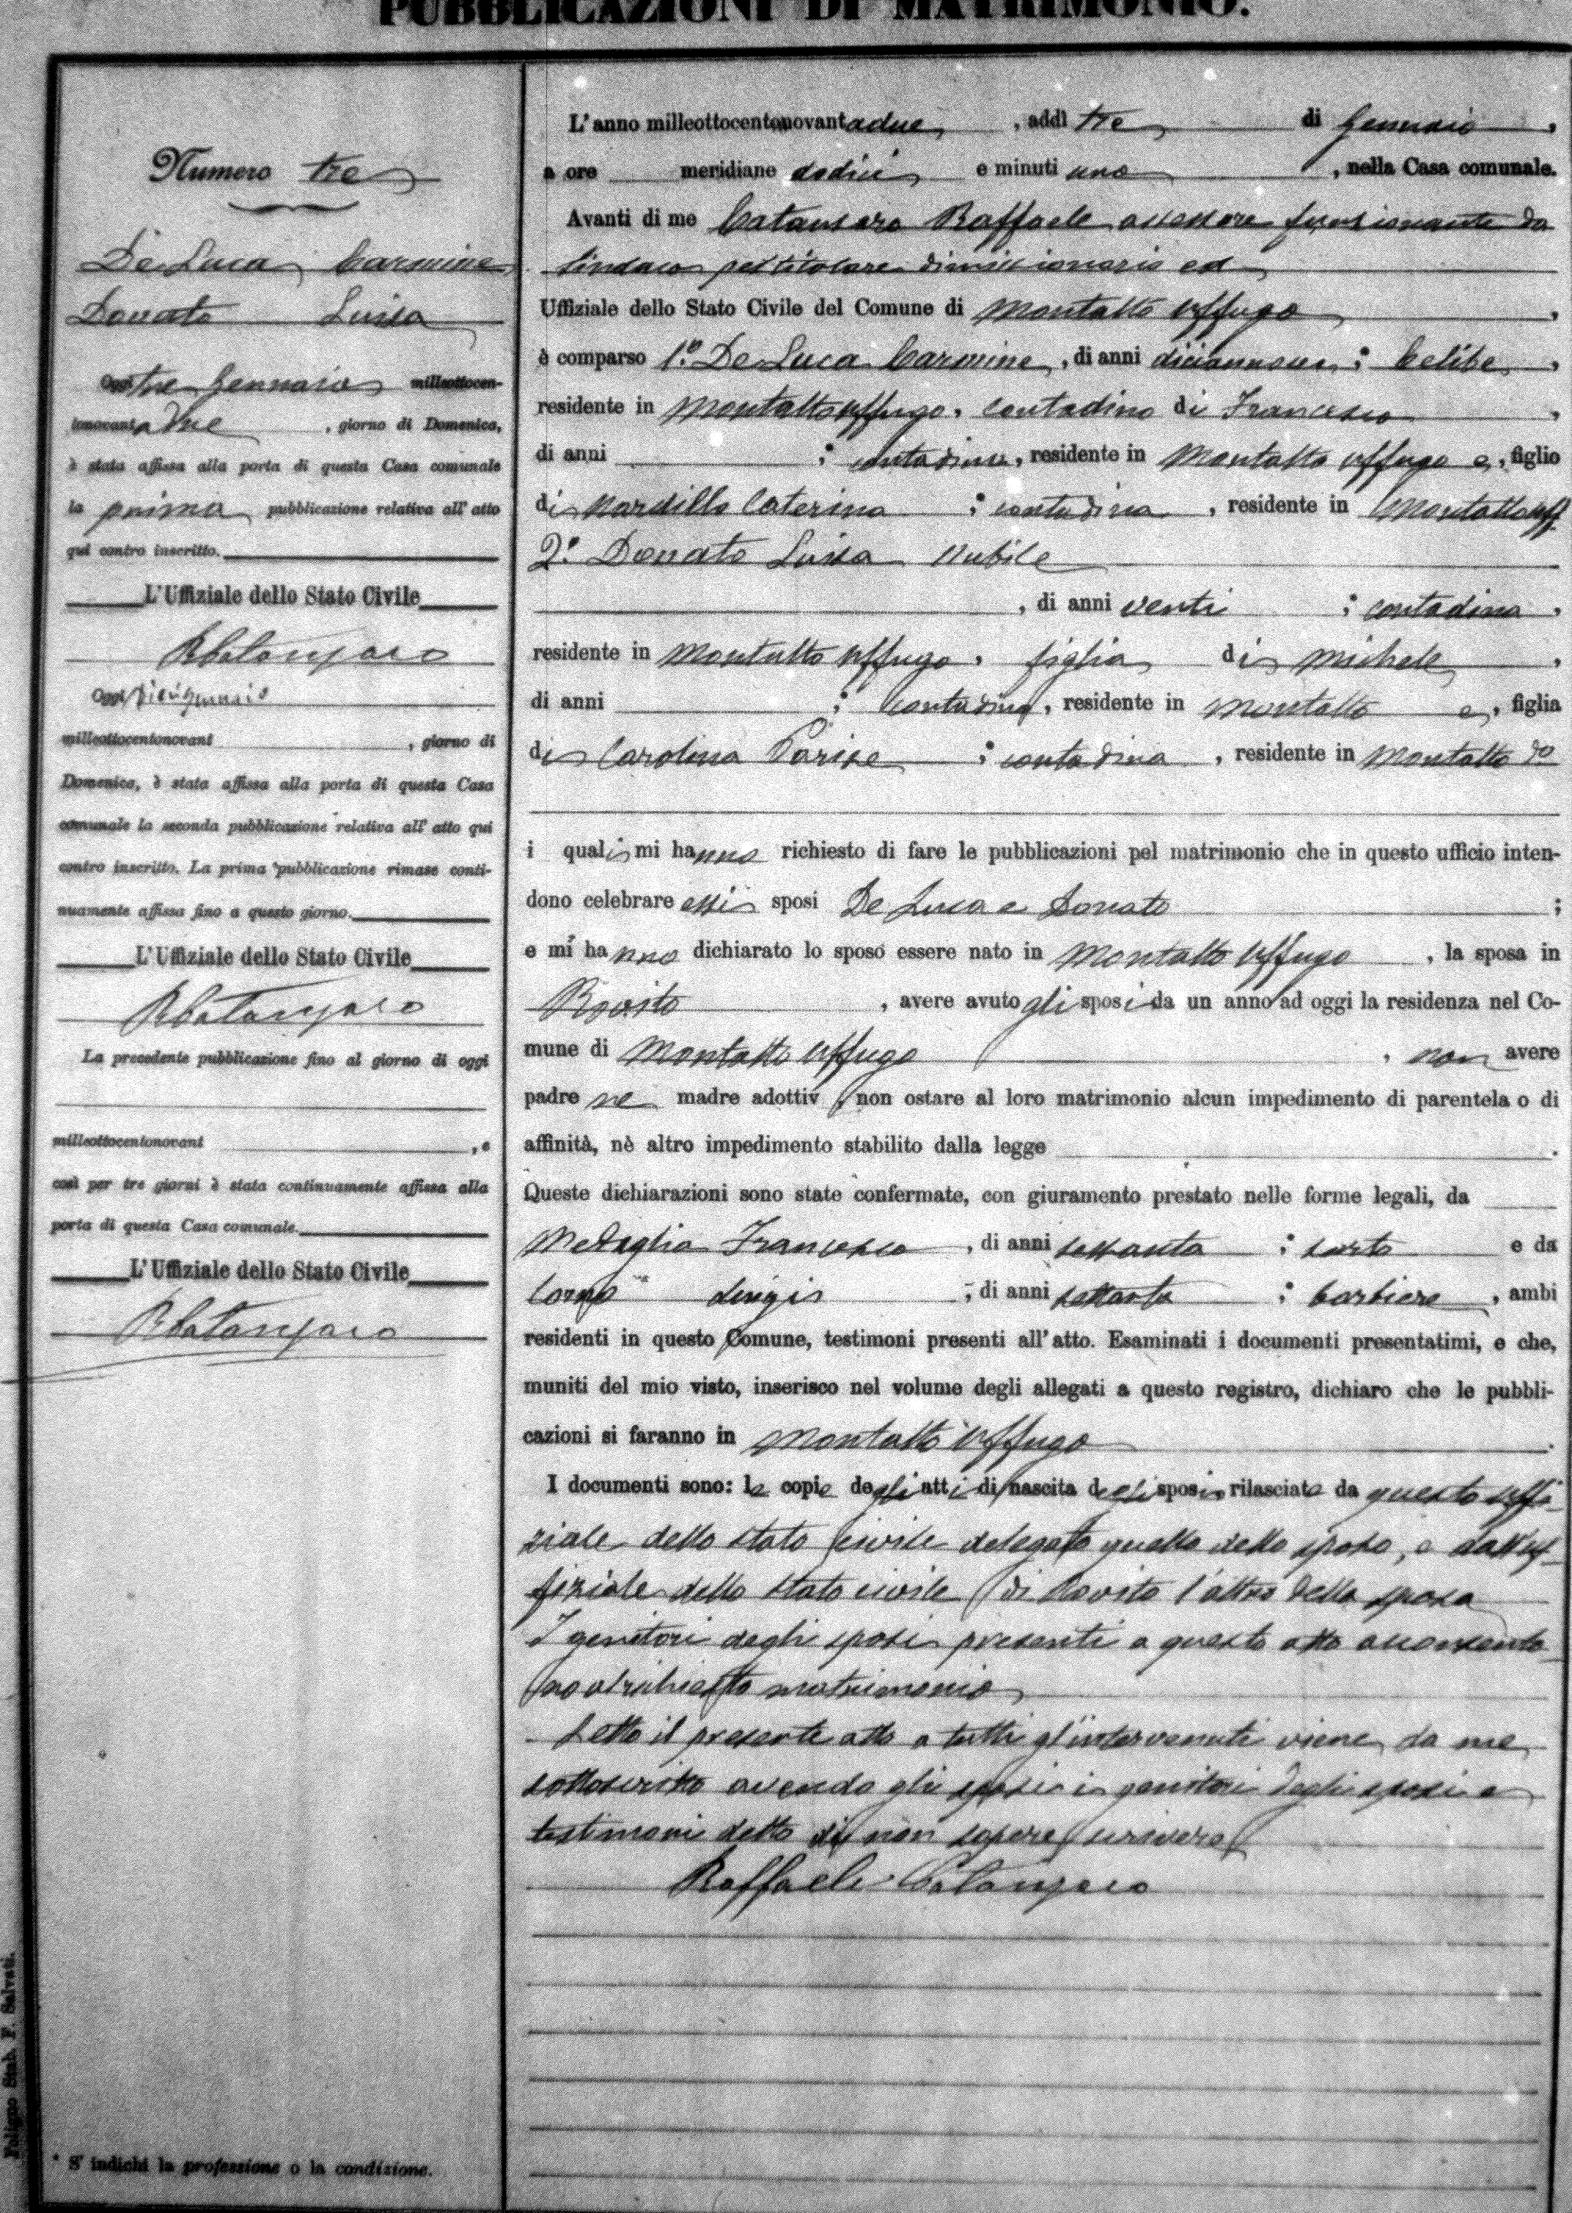 PUBBLICAZIONI DI MATRIMONIO.
Numero tre
De Luca Carmine
Donato Luisa
Oggi tre Gennaio milleottocen-
tonovantadue, giorno di Domenica,
è stata affissa alla porta di questa Casa comunale
la prima pubblicazione relativa all' atto
qui contro inscritto.
L'Uffiziale dello Stato Civile
RCatanzaro
Oggi dieci Gennaio
milleottocentonovant , giorno di
Domenica, è stata affissa alla porta di questa Casa
comunale la seconda pubblicazione relativa all' atto qui
contro inscritto. La prima pubblicazione rimase conti-
nuamente affissa fino a questo giorno.
L'Uffiziale dello Stato Civile
RCatanzaro
La precedente pubblicazione fino al giorno di oggi
milleottocentonovant , e
così per tre giorni è stata continuamente affissa alla
porta di questa Casa comunale.
L'Uffiziale dello Stato Civile
RCatanzaro
* S' indichi la professione o la condizione.
Foligno Stab. F. Salvati.
L'anno milleottocentonovantadue, addì tre di Gennaio,
a ore meridiane dodici e minuti uno, nella Casa comunale.
Avanti di me Catanzaro Raffaele assessore funzionante da
Sindaco pel titolare dimissionario ed
Uffiziale dello Stato Civile del Comune di Montalto Uffugo,
è comparso 1.º De Luca Carmine, di anni diciannove; celibe,
residente in Montalto Uffugo, contadino di Francesco,
di anni ; contadino, residente in Montalto Uffugo e, figlio
di Nardillo Caterina ; contadina, residente in Montalto Uff.
2.º Donato Luisa nubile
, di anni venti ; contadina,
residente in Montalto Uffugo, figlia di Michele,
di anni ; contadino, residente in Montalto e, figlia
di Carolina Parise ; contadina, residente in Montalto do
i quali mi hanno richiesto di fare le pubblicazioni pel matrimonio che in questo ufficio inten-
dono celebrare essi sposi De Luca e Donato ;
e mi hanno dichiarato lo sposo essere nato in Montalto Uffugo, la sposa in
Rovito, avere avuto gli sposi da un anno ad oggi la residenza nel Co-
mune di Montalto Uffugo, non avere
padre ne madre adottiv, non ostare al loro matrimonio alcun impedimento di parentela o di
affinità, nè altro impedimento stabilito dalla legge .
Queste dichiarazioni sono state confermate, con giuramento prestato nelle forme legali, da
Medaglia Francesco, di anni sessanta ; sarto e da
Luigi, di anni settanta ; barbiere, ambi
residenti in questo Comune, testimoni presenti all'atto. Esaminati i documenti presentatimi, e che,
muniti del mio visto, inserisco nel volume degli allegati a questo registro, dichiaro che le pubbli-
cazioni si faranno in Montalto Uffugo.
I documenti sono: le copie degli atti di nascita degli sposi, rilasciate da questo uffi-
ziale dello stato civile delegato quella dello sposo, e dall'uf-
fiziale dello stato civile di Rovito l'altra della sposa
I genitori degli sposi presenti a questo atto acconsento-
no al richiesto matrimonio
Letto il presente atto a tutti gl'intervenuti viene da me
sottoscritto avendo gli sposi i genitori degli sposi e
testimoni detto di non sapere scrivere
Raffaele Catanzaro